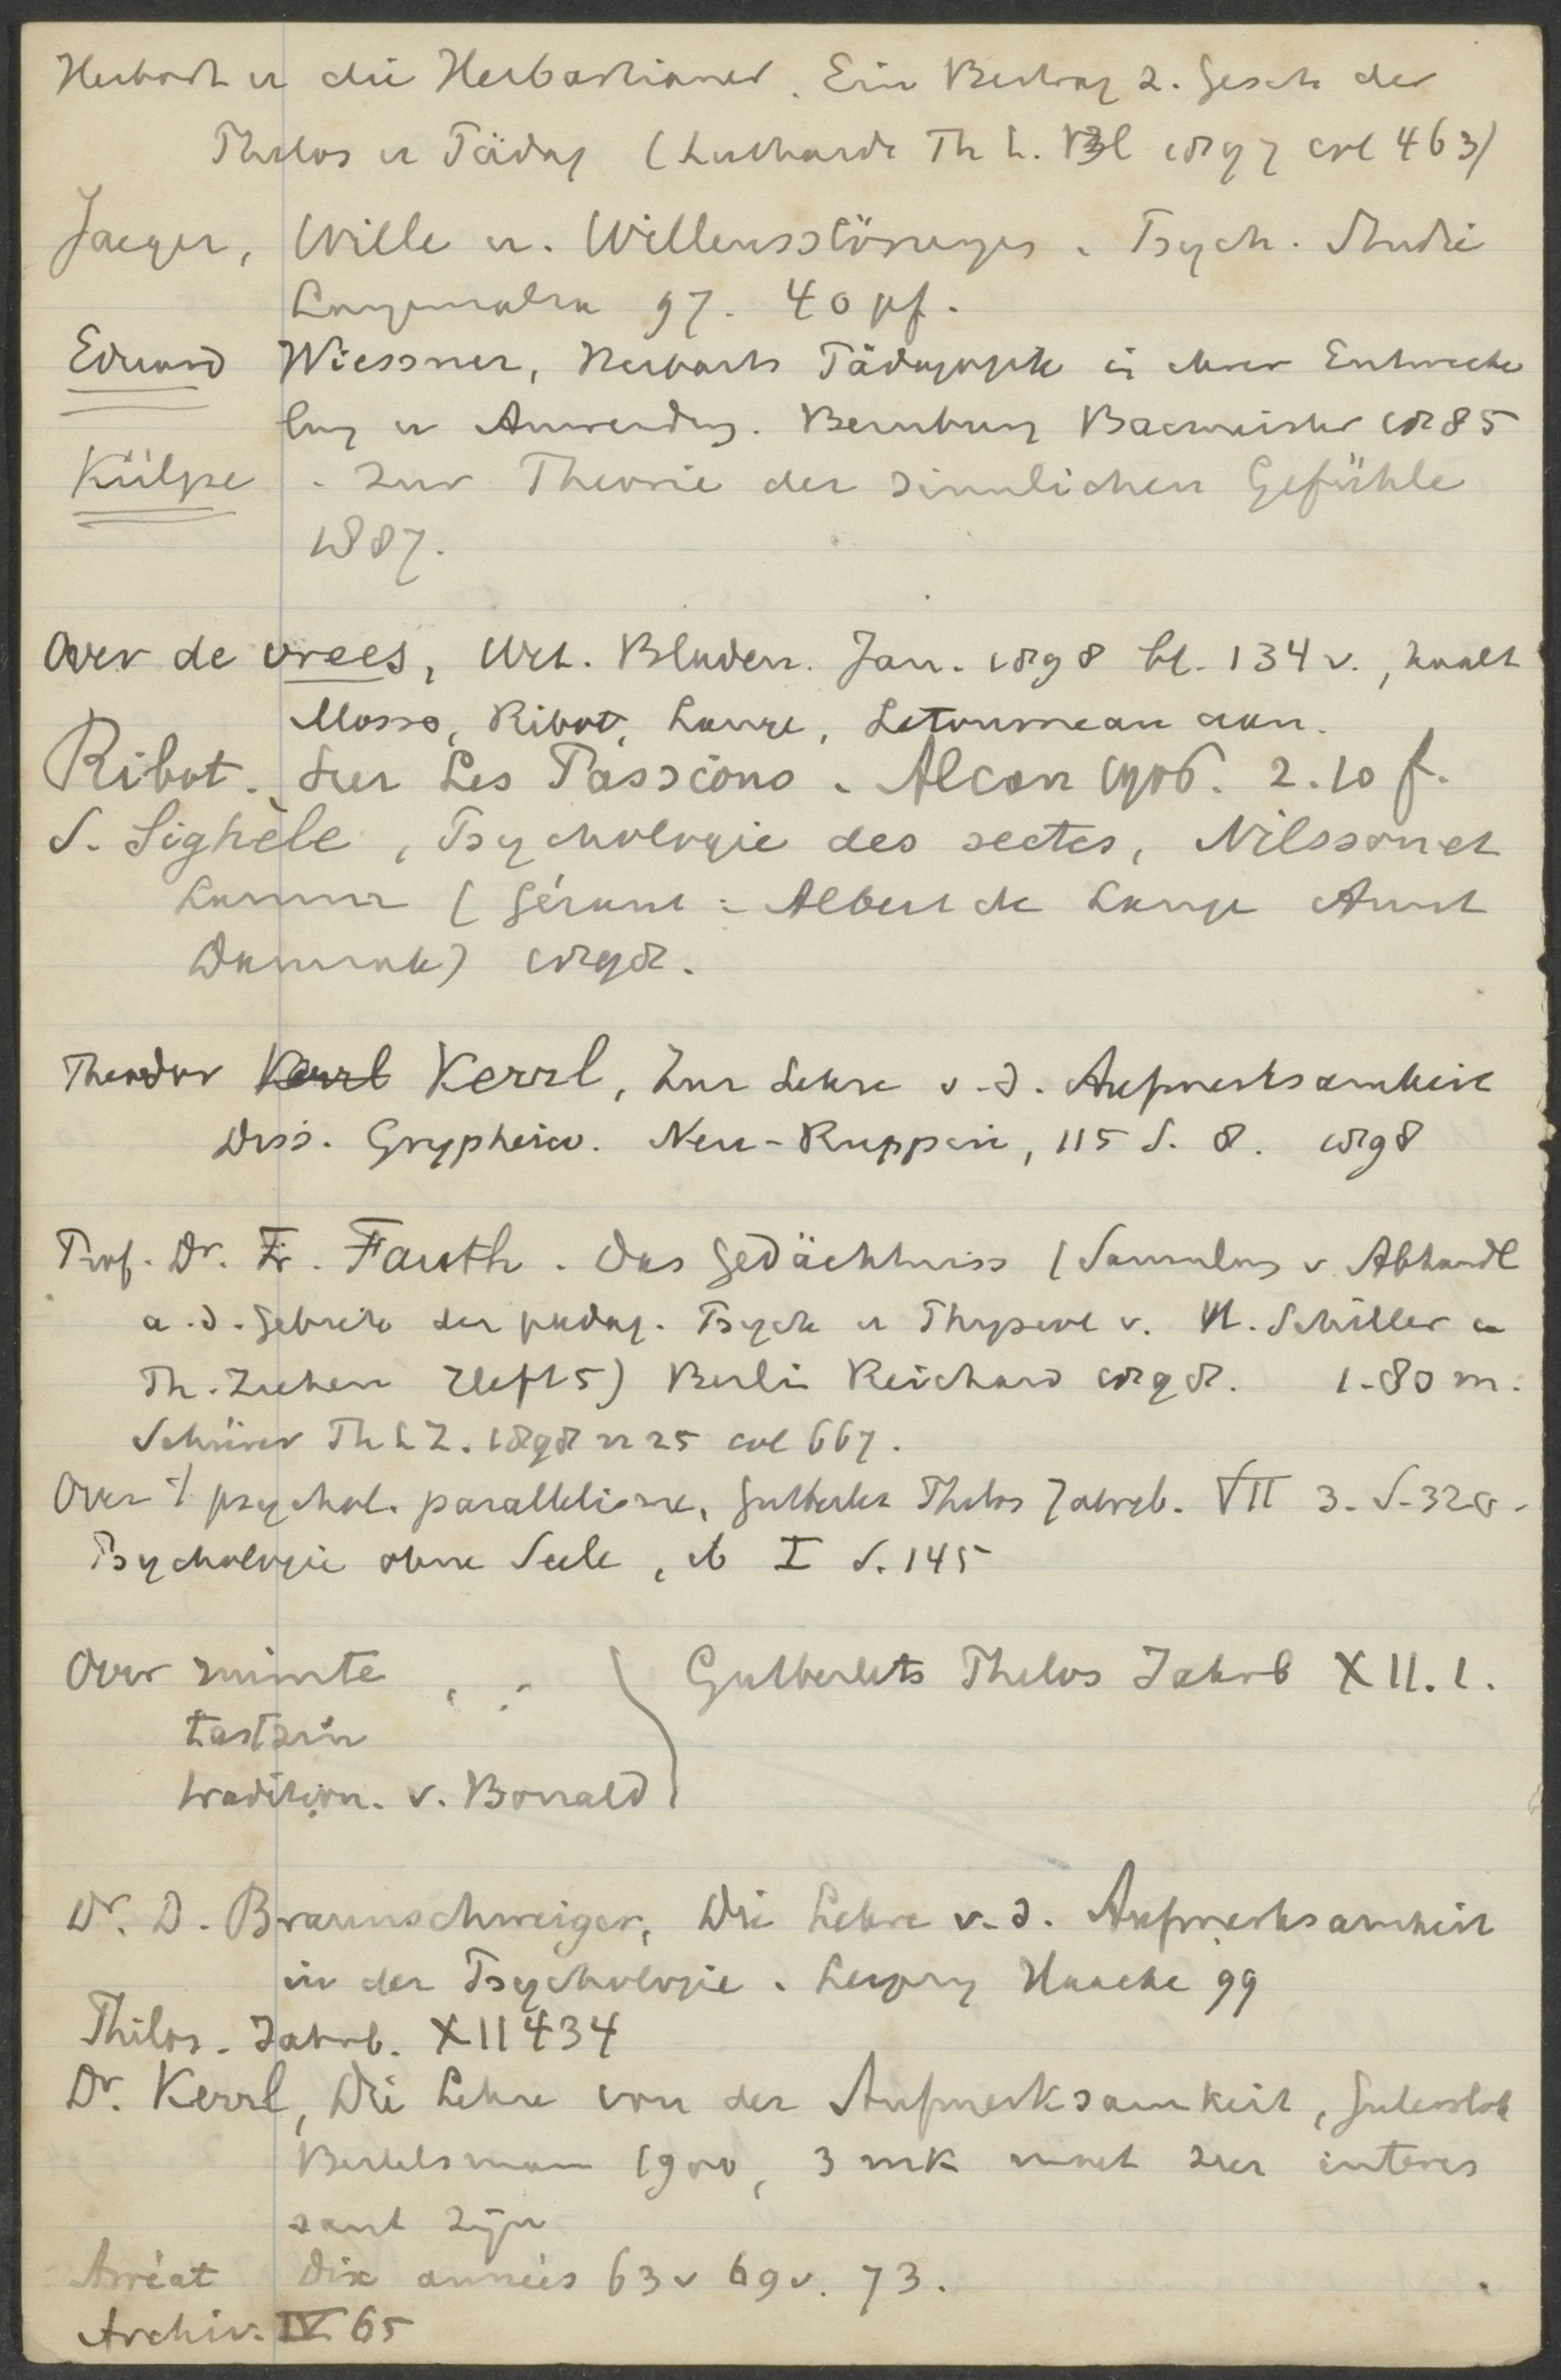 Herbart u die Herbartianer. Ein Beitrag z. Gesch der
Philos u Pädag (Luthardt Th L. Bl 1897 col 463)
Jaeger, Wille u. Willensstörungen. Psych. Studie
Langensalza 97. 40 pf.
Eduard Wiessner, Herbarts Pädagogik in ihrer Entwicke
lung u Anwendung. Bernburg Bacmeister 1885
Külpe. Zur Theorie der sinnlichen Gefühle
1887.
Over de vrees, Wet. Bladen. Jan. 1898 bl. 134 v., haalt
Mosso, Ribot, Lange, Letourneau aan.
Ribot. Sur Les Passions. Alcan 1906. 2.10 f.
S. Sighèle, Psychologie des sectes,
(Gérant: Albert de Lange Amst
Damrak) 1898.
Theodor Kerrl Kerrl, Zur Lehre v. d. Aufmerksamkeit
Diss. Gryphisw. Neu-Ruppin, 115 S. 8. 1898
Prof. Dr. Fr. Fauth. Das Gedächtniss (Sammlung v Abhandl
a. d. Gebiete der padag. Psych u Physiol v. H. Schiller u
Th. Ziehen Heft 5) Berlin Reichard 1898. 1.80 m.
Schürer Th L Z. 1898 n 25 col 667.
Over psychol. parallelisme, Gutberlet Philos Jahrb. VII 3. S. 328.
Psychologie ohne Seele, ib I S. 145
Over ruimte
tastzin
tradition. v. Bonald
Gutberlets Philos Jahrb XII. 1.
Dr. D. Braunschweiger, Die Lehre v. d. Aufmerksamkeit
in der Psychologie. Leipzig Haacke 99
Philos. Jahrb. XII 434
Dr. Kerrl, Die Lehre von der Aufmerksamkeit, Gutersloh
Bertelsmann 1900, 3 mk moet zeer interes
sant zijn
Arréat Dix années 63 v 69 v. 73.
Archiv. IV 65